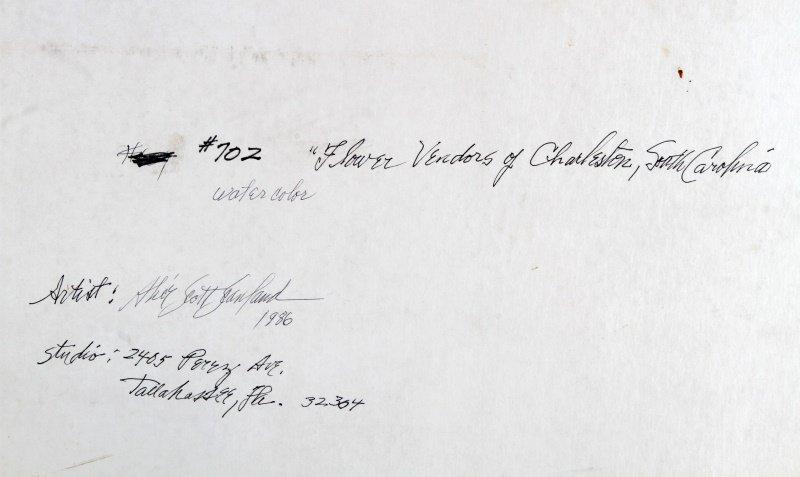 #702 "Flower Vendors of Charleston, South Carolina
watercolor
Artist: Scott
1986
Studio: 2405 Perez Ave.
Tallahassee, Fla. 32304